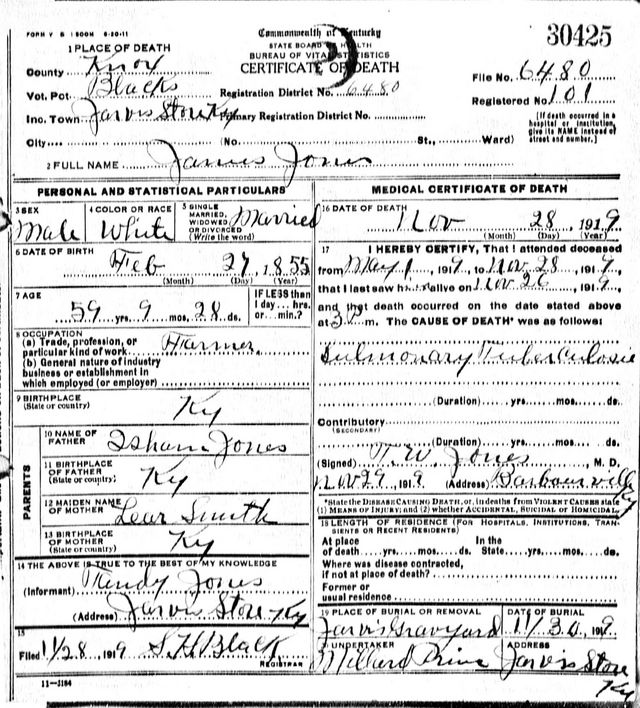 FORM V S 1 500M 6-20-11
Commonwealth of Kentucky
STATE BOARD OF HEALTH
BUREAU OF VITAL STATISTICS
CERTIFICATE OF DEATH
30425
1 PLACE OF DEATH
County Knox
Vot. Pct. Blacks
Inc. Town Jarvis Store Ky
City
Registration District No. 6480
Primary Registration District No.
(No. St., Ward)
File No. 6480
Registered No. 101
[If death occurred in a hospital or institution, give its NAME instead of street and number.]
2 FULL NAME James Jones
PERSONAL AND STATISTICAL PARTICULARS
3 SEX Male
4 COLOR OR RACE White
5 SINGLE MARRIED, WIDOWED OR DIVORCED (Write the word) Married
6 DATE OF BIRTH Feb 27, 1855
(Month) (Day) (Year)
7 AGE 59 yrs. 9 mos. 28 ds.
IF LESS than 1 day... hrs. or... min.?
8 OCCUPATION
(a) Trade, profession, or particular kind of work Farmer
(b) General nature of industry business or establishment in which employed (or employer)
9 BIRTHPLACE (State or country) Ky
PARENTS
10 NAME OF FATHER Isham Jones
11 BIRTHPLACE OF FATHER (State or country) Ky
12 MAIDEN NAME OF MOTHER Lear Smith
13 BIRTHPLACE OF MOTHER (State or country) Ky
14 THE ABOVE IS TRUE TO THE BEST OF MY KNOWLEDGE
(Informant) Jones
(Address) Jarvis Store Ky
15
Filed 11/28, 1919 S.H. Black
REGISTRAR
11-3184
MEDICAL CERTIFICATE OF DEATH
16 DATE OF DEATH Nov 28, 1919
(Month) (Day) (Year)
17 I HEREBY CERTIFY, That I attended deceased
from May 1, 1919, to Nov 28, 1919,
that I last saw h alive on Nov 26, 1919,
and that death occurred on the date stated above
at 3 P m. The CAUSE OF DEATH* was as follows:
Pulmonary Tuberculosis
(Duration) yrs. mos. ds.
Contributory
(SECONDARY)
(Duration) yrs. mos. ds.
(Signed) T.W. Jones, M. D.
Nov 29, 1919 (Address) Barbourville Ky
*State the DISEASE CAUSING DEATH, or, in deaths from VIOLENT CAUSES state (1) MEANS OF INJURY; and (2) whether ACCIDENTAL, SUICIDAL OR HOMICIDAL.
18 LENGTH OF RESIDENCE (FOR HOSPITALS, INSTITUTIONS, TRANSIENTS OR RECENT RESIDENTS)
At place of death yrs. mos. ds. In the State yrs. mos. ds.
Where was disease contracted, if not at place of death?
Former or usual residence
19 PLACE OF BURIAL OR REMOVAL Jarvis Graveyard
DATE OF BURIAL 11/30, 1919
20 UNDERTAKER Millard
ADDRESS Jarvis Store Ky